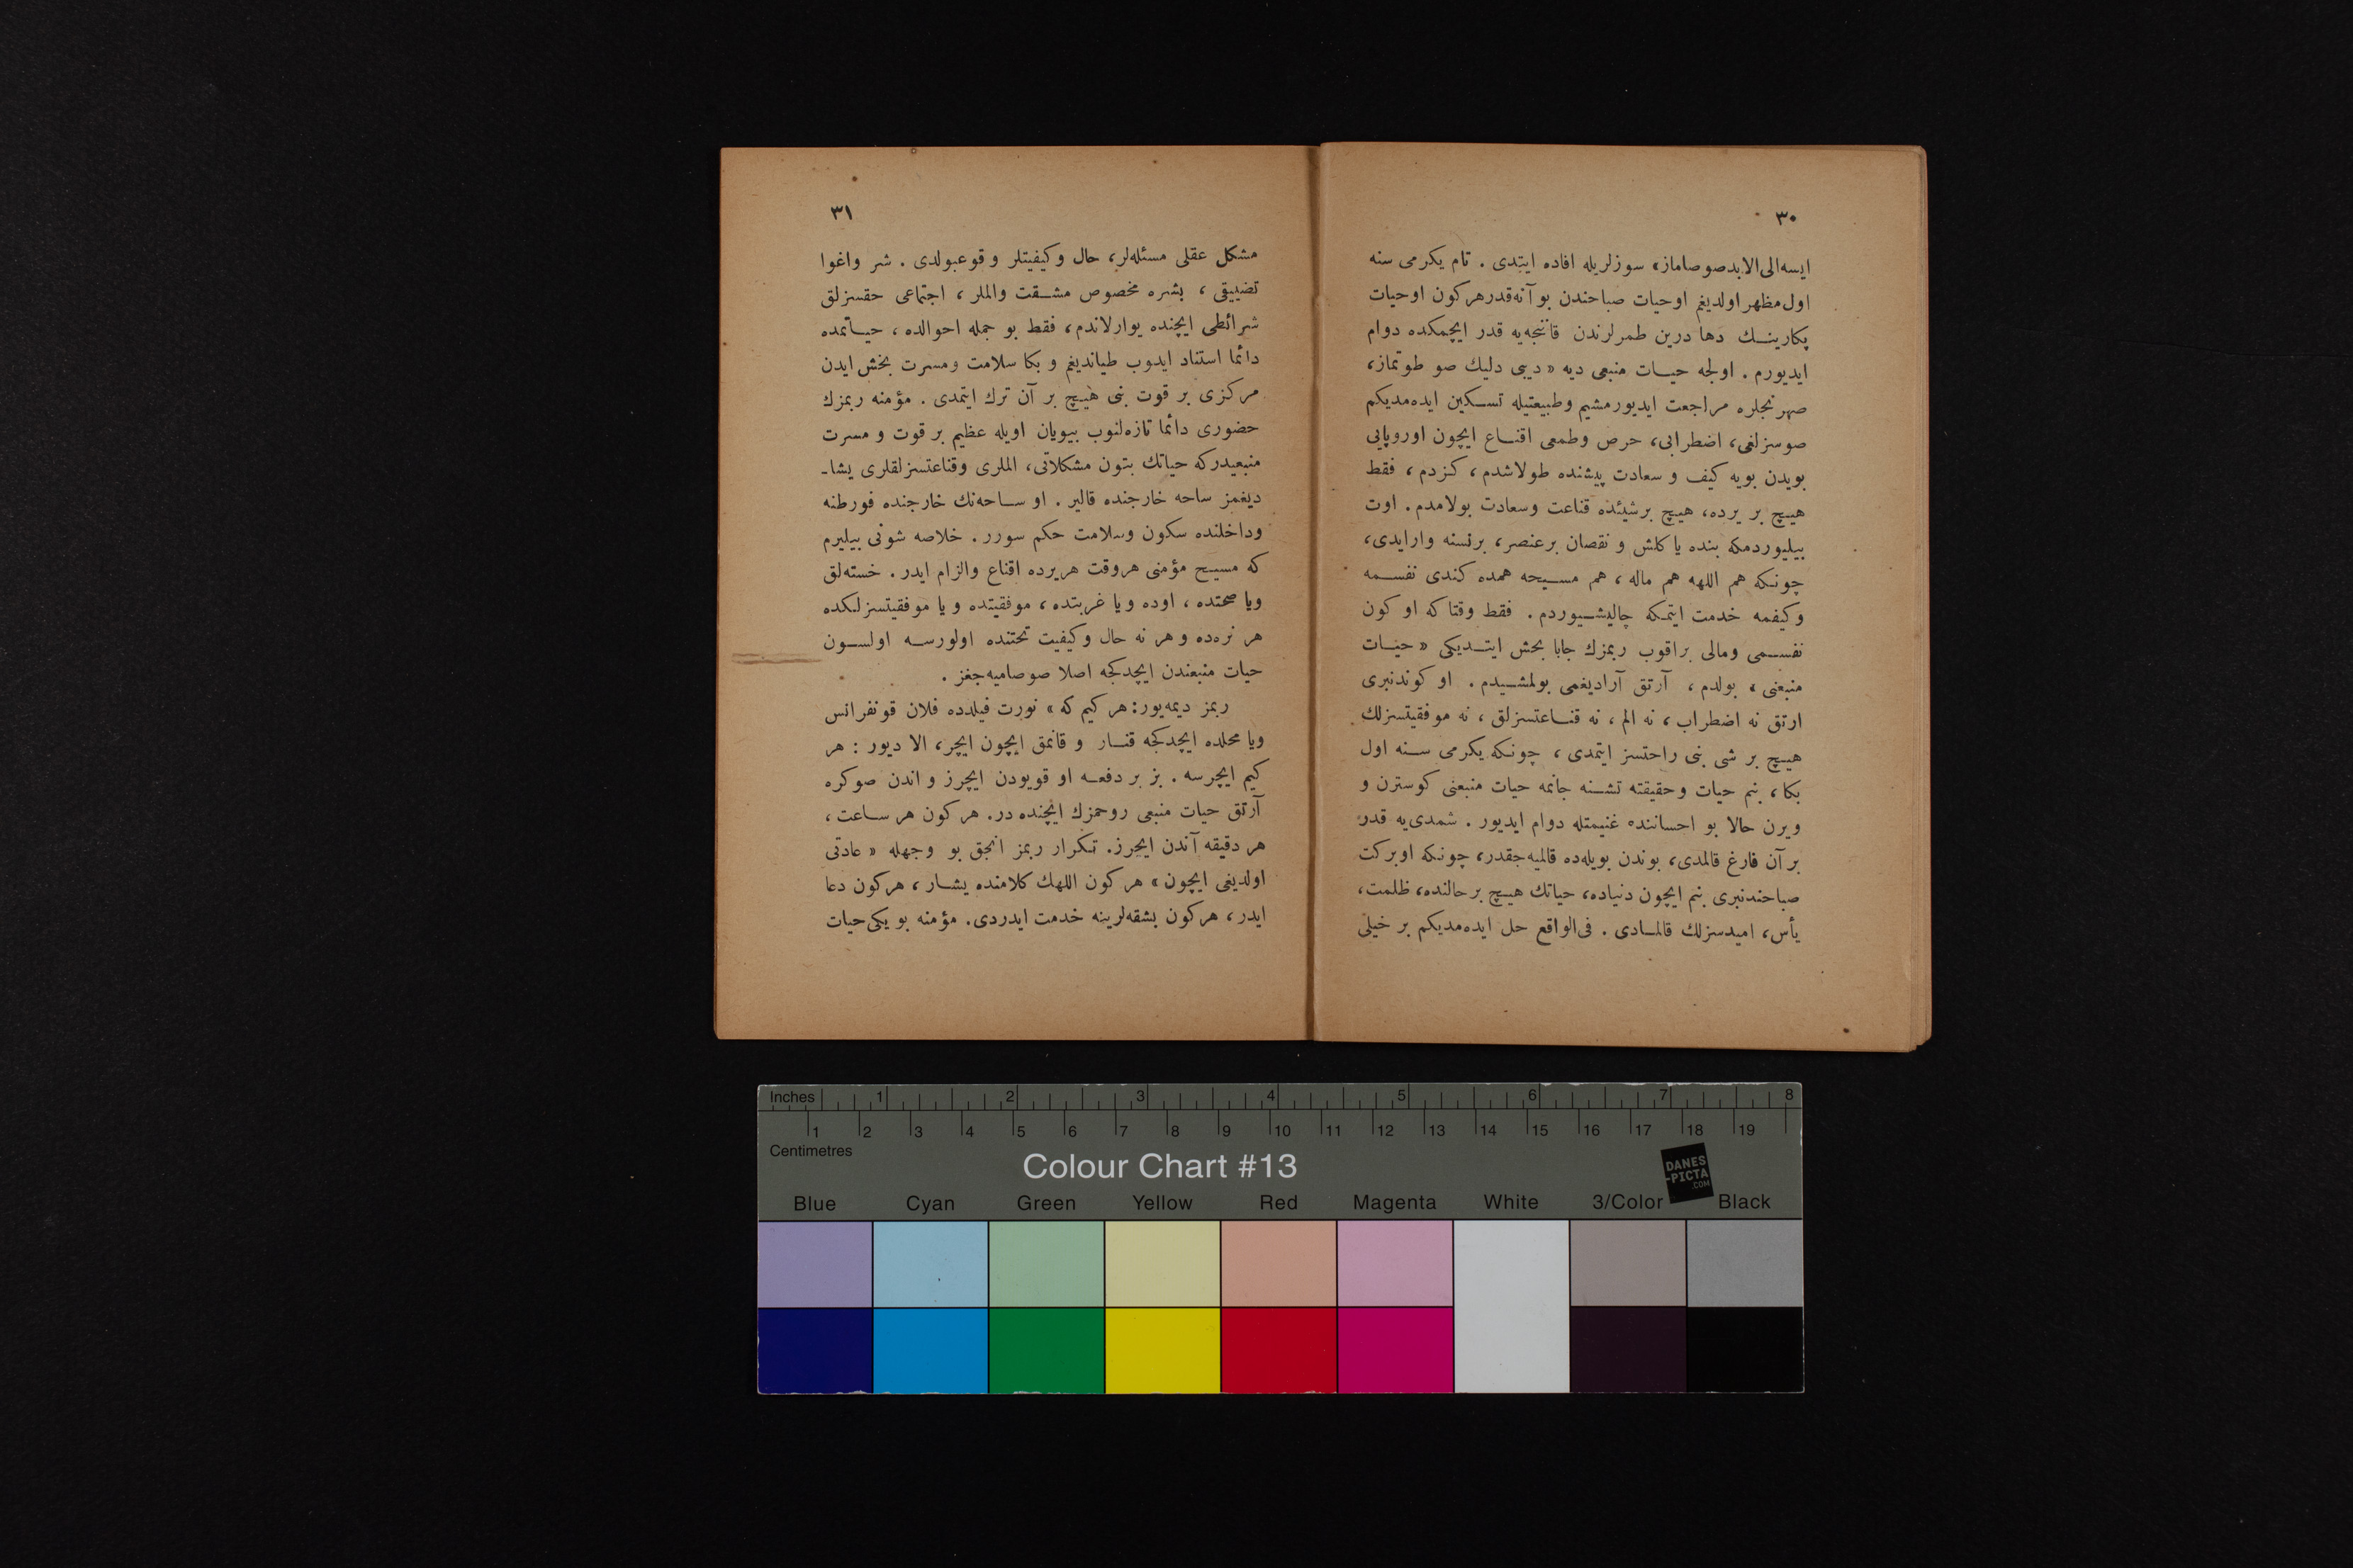 ٣٠
ايسه الى الابد صوصاماز» سوزلريله افاده ايتدى . تام يكرمى سنه
اول مظهر اولديغم او حيات صباحندن بو آنه قدر هركون او حيات
پكارينــك دها درين طمرلرندن قاننجه‌يه قدر ايچمكده دوام
ايديورم . اولجه حيــات منبعى ديه « ديبى دليك صو طوتماز،
صهرنجلره مراجعت ايديورمشيم وطبيعتيله تســكين ايده‌مديكم
صوسزلغى، اضطرابى، حرص وطمعى اقنــاع ايچون اوروپايى
بويدن بويه كيف و سعادت پيشنده طولاشدم، كزدم، فقط
هيــچ بر يرده، هيچ برشيئده قناعت وسعادت بولامدم . اوت
بيليوردمكه بنده ياكلش و نقصان برعنصر، برنسنه وارايدى،
چونكه هم اللهه هم ماله، هم مســيحه همده كندى نفســمه
وكيفمه خدمت ايتمكه چاليشــيوردم . فقط وقتاكه او كون
نفســمى ومالى براقوب ربمزك جابا بخش ايتــديكى « حيــات
منبغنى » بولدم ، آرتق آراديغمى بولمشــيدم . او كوندنبرى
ارتق نه اضطراب، نه الم ، نه قنــاعتسزلق ، نه موفقيتسزلك
هيــچ بر شى بنى راحتسز ايتمدى ، چونكه يكرمى ســنه اول
بكا، بنم حيات وحقيقته تشــنه جانمه حيات منبعنى كوسترن و
ويرن حالا بو احساننده غنيمتله دوام ايديور . شمدى‌يه قدر
بر آن فارغ قالمدى، بوندن بويله‌ده قالميه‌جقدر، چونكه اوبركت
صباحندنبرى بنم ايچون دنياده، حياتك هيــچ برحالنده، ظلمت،
يأس، اميدسزلك قالمــادى . فى‌الواقع حل ايده‌مديكم بر خيلى
٣١
مشكل عقلى مسئله‌لر، حال وكيفيتلر وقوعبولدى . شر واغوا
تضييقى ، بشره مخصوص مشــقت والملر ، اجتماعى حقسزلق
شرائطى ايچنده يوارلاندم، فقط بو جمله احوالده ، حيــاتمده
دائما استناد ايدوب طيانديغم و بكا سلامت ومسرت بخش ايدن
مركزى بر قوت بنى هيــچ بر آن ترك ايتمدى . مؤمنه ربمزك
حضورى دائما تازه‌لنوب بيويان اويله عظيم بر قوت و مسرت
منبعيدركه حياتك بتون مشكلاتى، الملرى وقناعتسزلقلرى يشا-
ديغمز ساحه خارجنده قالير . او ســاحه‌نك خارجنده فورطنه
وداخلنده سكون وسلامت حكم سورر . خلاصه شونى بيليرم
كه مسيــح مؤمنى هروقت هريرده اقناع والزام ايدر . خسته‌لق
ويا صحتده ، اوده ويا غربتده ، موفقيتده ويا موفقيتسزلكده
هر نره‌ده و هر نه حال وكيفيت تحتنده اولورســه اولســون
حيات منبعندن ايچدكجه اصلا صوصاميه‌جغز .
ربمز ديمه‌يور: هر كيم كه » نورت فيلدده فلان قونفرانس
ويا محلده ايچدكجه قنــار و قانمق ايچون ايچر، الا ديور : هر
كيم ايچرسه . بز بر دفعــه او قويودن ايچرز و اندن صوكره
آرتق حيات منبعى روحمزك ايچنده در. هركون هر ســاعت ،
هر دقيقه آندن ايچرز. تكرار ربمز انجق بو وجهله « عادتى
اولديغى ايچون» هركون اللهك كلامنده يشــار، هركون دعا
ايدر، هركون بشقه‌لرينه خدمت ايدردى. مؤمنه بو يكى‌حيات
Inches 1 2 3 4 5 6 7 8
1 2 3 4 5 6 7 8 9 10 11 12 13 14 15 16 17 18 19
Centimetres
Colour Chart #13
DANES
-PICTA
.COM
Blue Cyan Green Yellow Red Magenta White 3/Color Black